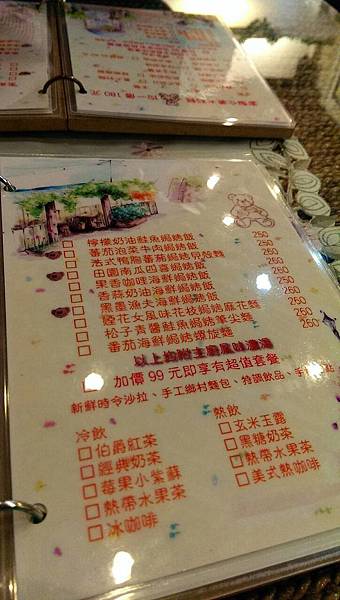 均一價 180 元
檸檬奶油鮭魚焗烤飯 250
番茄泡菜牛肉焗烤飯 260
法式鴨胸番茄焗烤貝殼麵 260
田園南瓜四喜焗烤飯 250
果香咖哩海鮮焗烤飯 260
香蒜奶油海鮮焗烤飯 260
黑墨漁夫海鮮焗烤飯 260
煙花女風味花枝焗烤麻花麵 260
松子青醬鮭魚焗烤筆尖麵 260
番茄海鮮焗烤螺旋麵 260
以上均附主廚風味濃湯
加價 99 元即享有超值套餐
新鮮時令沙拉、手工鄉村麵包、特調飲品、手
冷飲
伯爵紅茶
經典奶茶
莓果小紫蘇
熱帶水果茶
冰咖啡
熱飲
玄米玉露
黑糖奶茶
熱帶水果茶
美式熱咖啡